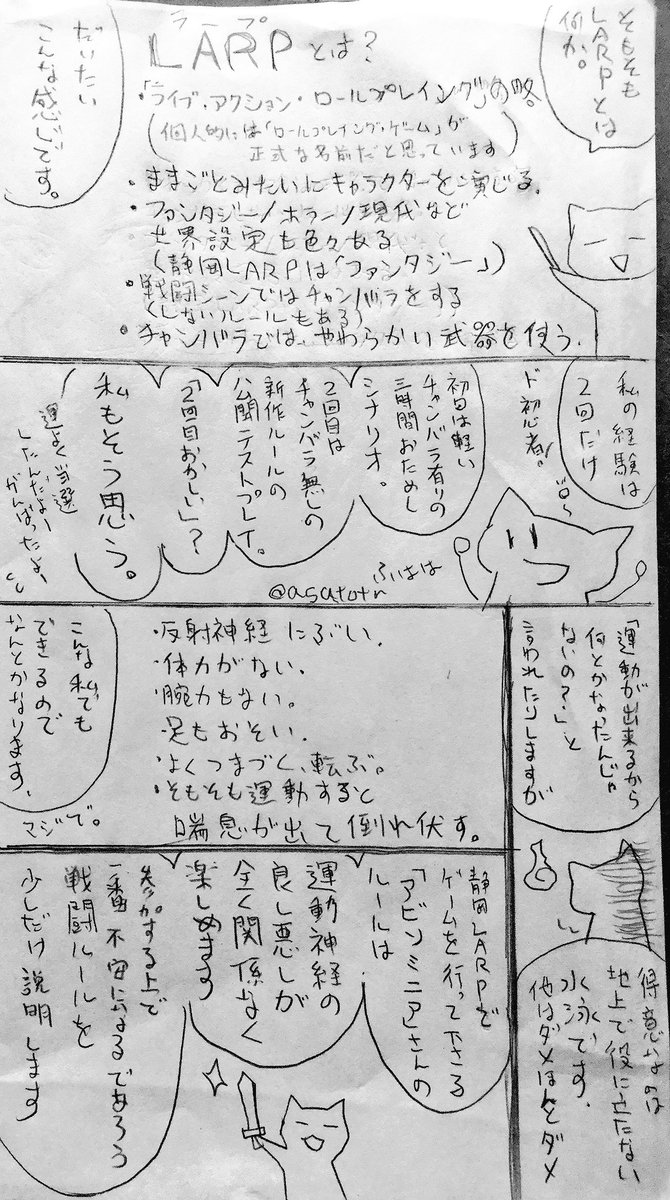 そもそも
LARPとは
何か。
ラープ
LARPとは?
「ライブ・アクション・ロールプレイング」の略
(個人的には「ロールプレイング・ゲーム」が
正式な名前だと思っています)
・ままごとみたいにキャラクターを演じる。
・ファンタジー/ホラー/現代など
世界設定も色々ある
(静岡LARPは「ファンタジー」)
・戦闘シーンではチャンバラをする
(しないルールもある)
・チャンバラでは、やわらかい武器を使う。
だいたい
こんな感じです。
私の経験は
2回だけ
ド初心者!
初回は軽い
チャンバラ有りの
三時間おためし
シナリオ。
2回目は
チャンバラ無しの
新作ルールの
公開テストプレイ。
「2回目おかしい」?
私もそう思う。
運よく当選
したんだよー
がんばったよ、
ふはは
@asatotn
「運動が出来るから
何とかなったんじゃ
ないの?」と
言われたりしますが
得意なのは
地上で役に立たない
水泳です。
他はダメほんとダメ
・反射神経にぶい。
・体力がない。
・腕力もない。
・足もおそい。
・よくつまづく、転ぶ。
・そもそも運動すると
喘息が出て倒れ伏す。
こんな私でも
できるので
なんとかなります。
マジで。
静岡LARPで
ゲームを行って下さる
「アビソミニア」さんの
ルールは
運動神経の
良し悪しが
全く関係なく
楽しめます
参加する上で
一番不安になるであろう
戦闘ルールを
少しだけ説明します